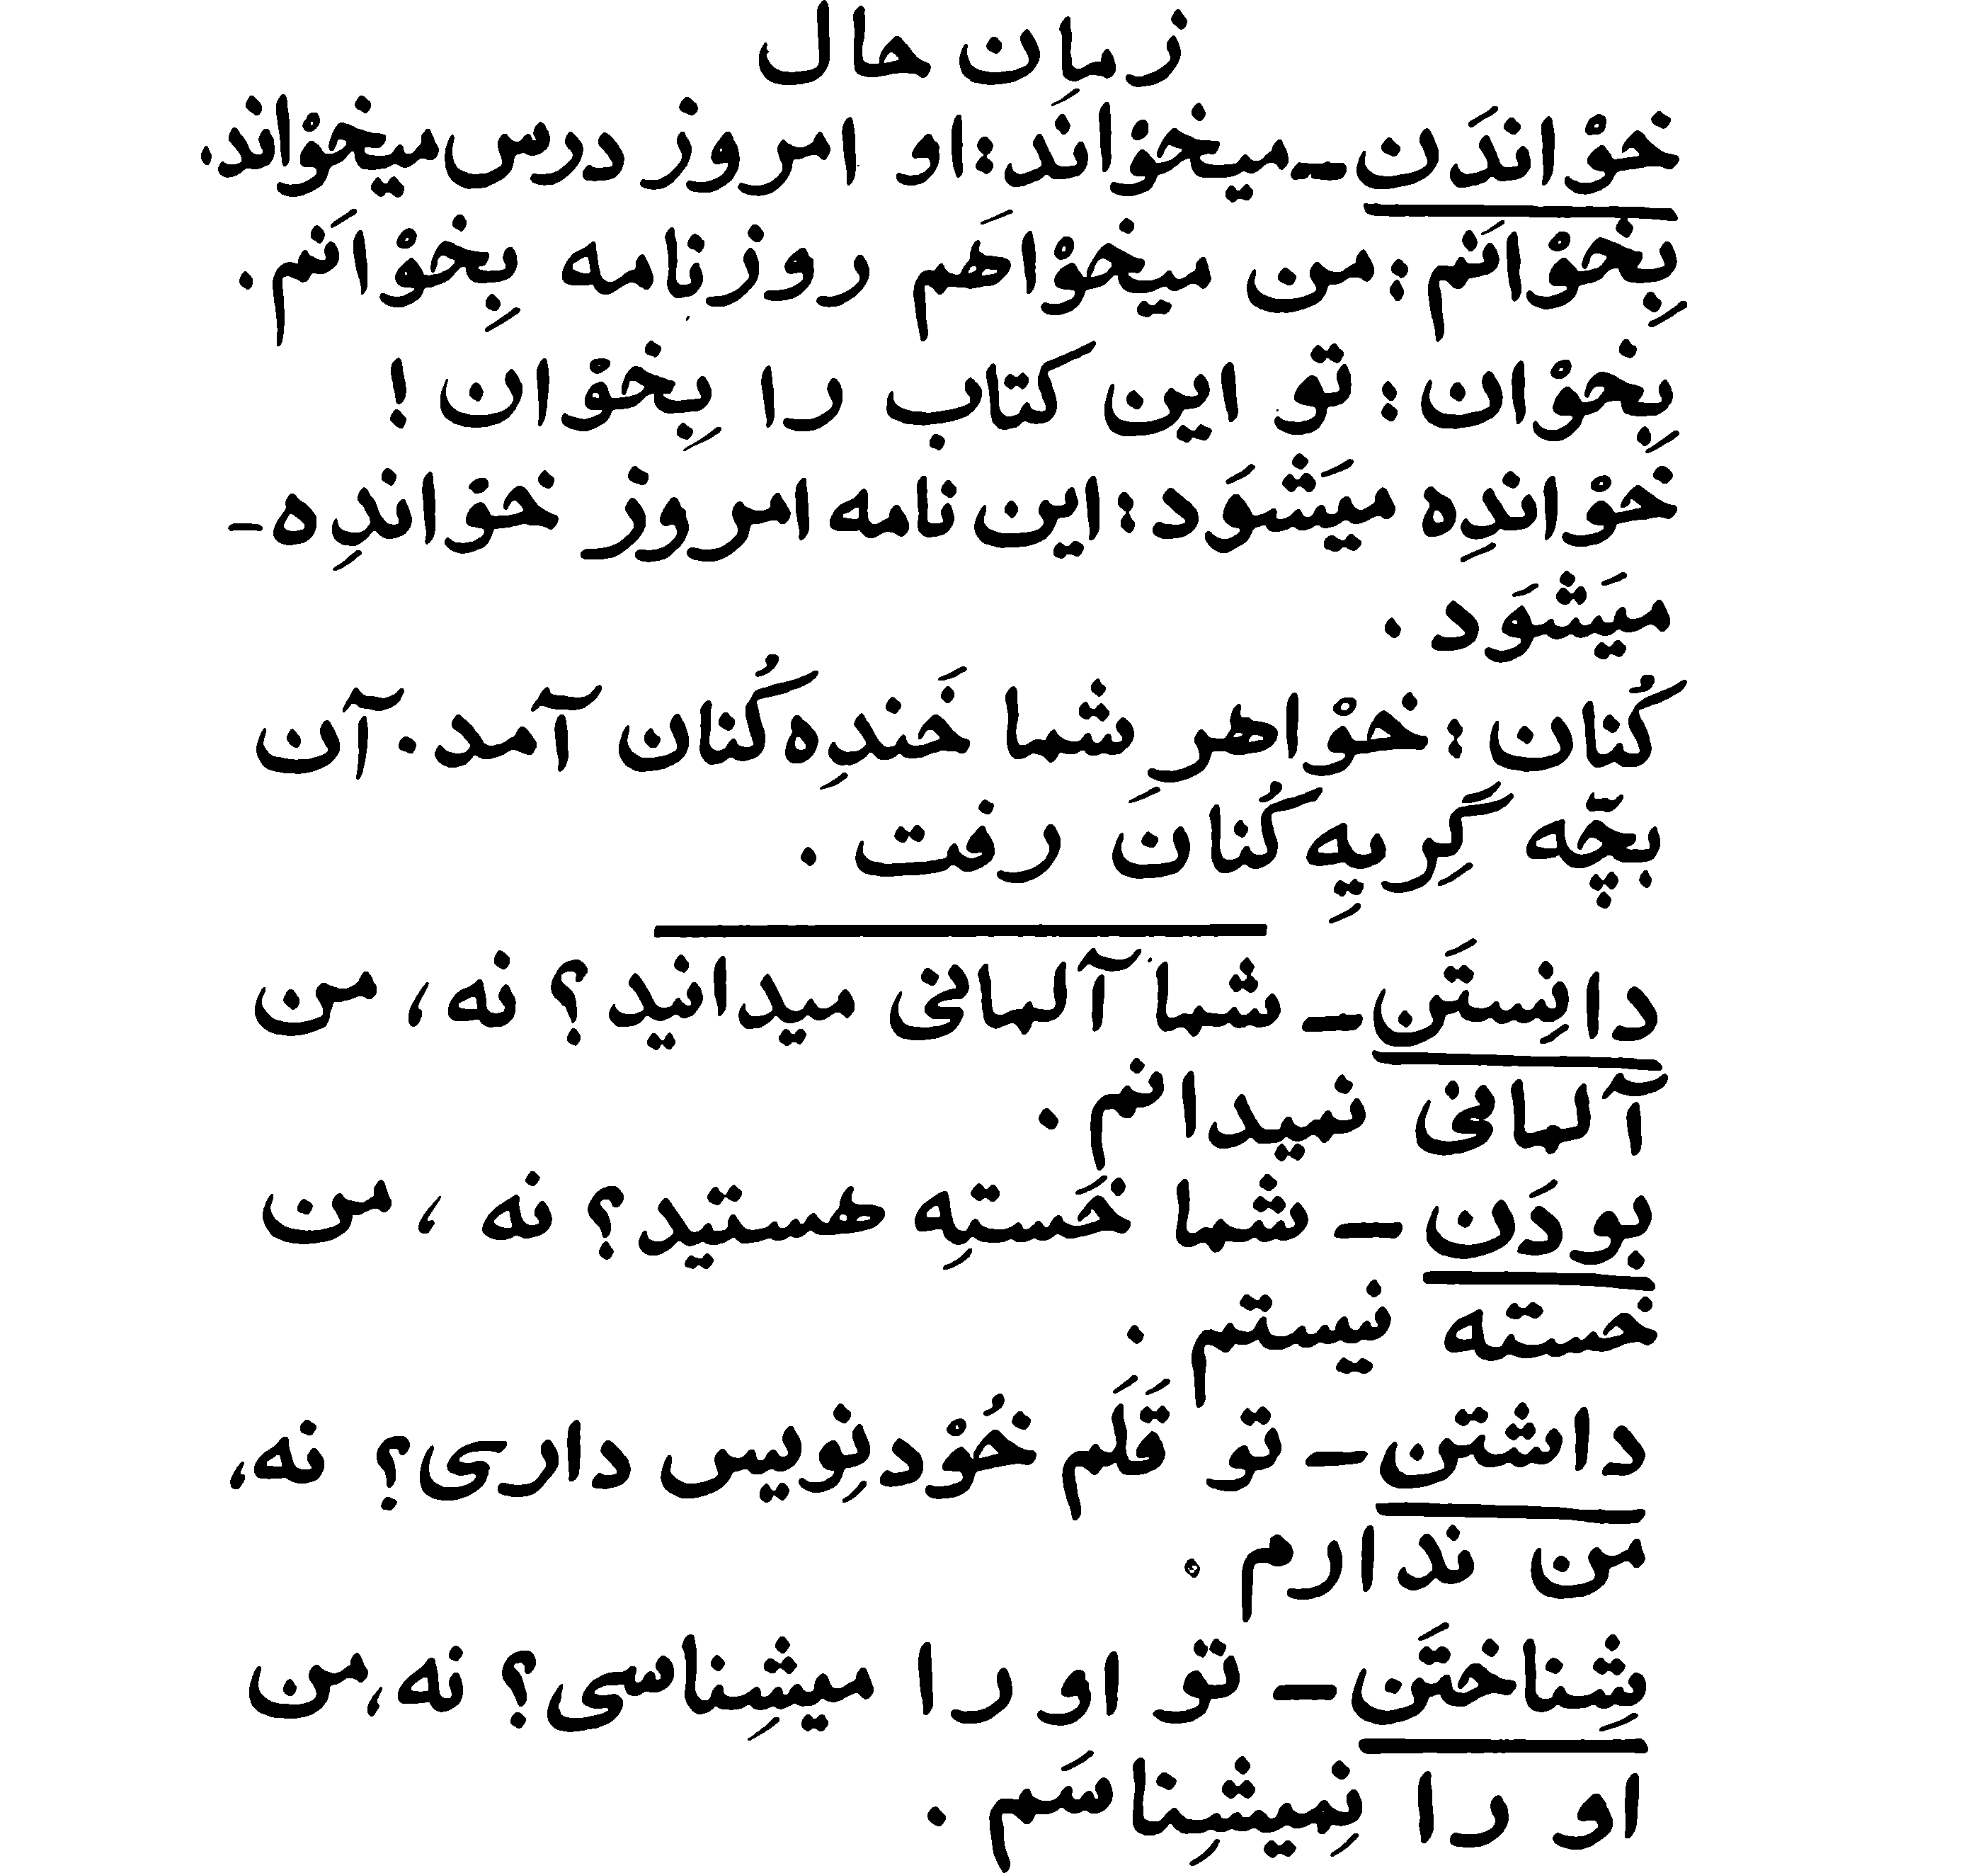 زمان حال
خوْاندَن ـ میخوْاندَ: او امروز درس میخوْاند.
بِخوْانَم: من میخوْاهَم روزنامه بِخوْانم.
بِخوْان: تو این کتاب را بِخوْان !
خوْاندِه میَشوَد: این نامه امروز خوْاندِه ـ
میَشوَد .
کُنان: خوْاهرِ شما خَندِه کُنان آمد. آن
بچّه گِریِه کُنان رفت .
دانِستَن ـ شما آلمانی میدانید؟ نه، من
آلمانی نمیدانم .
بودَن ـ شما خَستِه هستید؟ نه ، من
خسته نیستم .
داشتن ـ تو قَلَم خُوْدنِویس داری؟ نه،
من ندارم .
شِناختَن ـ تو او را میشِناسی؟ نه، من
او را نِمیشِناسَم .